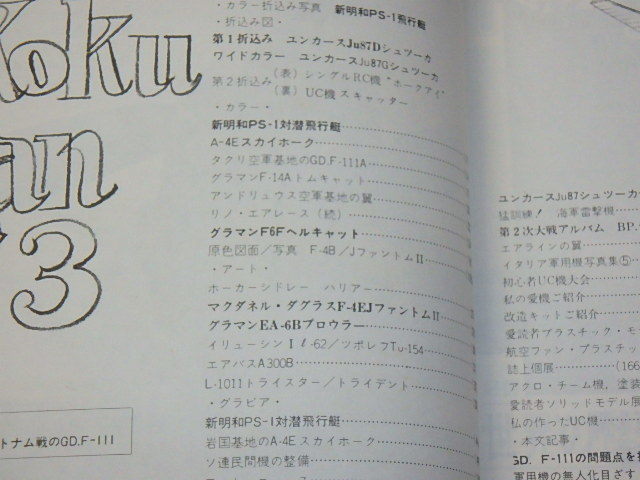 Koku
an
'73
・カラー折込み写真 新明和PS-1飛行艇
・折込み図・
第1折込み ユンカースJu87Dシュツーカ
ワイドカラー ユンカースJu87Gシュツーカ
第2折込み (表) シングルRC機“ホークアイ
(裏) UC機スキャッター
・カラー・
新明和PS-1対潜飛行艇
A-4Eスカイホーク
タクリ空軍基地のGD.F-111A
グラマンF-14Aトムキャット
アンドリュウス空軍基地の翼
リノ・エアレース (続)
グラマンF6Fヘルキャット
原色図面/写真 F-4B/JファントムII
・アート・
ホーカーシドレー ハリアー
マクダネル・ダグラスF-4EJファントムII
グラマンEA-6Bプロウラー
イリューシンIℓ-62/ツポレフTu-154
エアバスA300B
L-1011トライスター/トライデント
・グラビア・
新明和PS-1対潜飛行艇
岩国基地のA-4Eスカイホーク
ソ連民間機の整備
トナム戦のGD.F-111
ユンカースJu87シュツーカ
猛訓練! 海軍雷撃機
第2次大戦アルバム BP.
エアラインの翼
イタリア軍用機写真集⑤
初心者UC機大会
私の愛機ご紹介
改造キットご紹介
愛読者プラスチック・モ
航空ファン・プラスチッ
誌上個展 (166
アクロ・チーム機, 塗装
愛読者ソリッドモデル展
私の作ったUC機
・本文記事・
GD. F-111の問題点を
軍用機の無人化目ざす